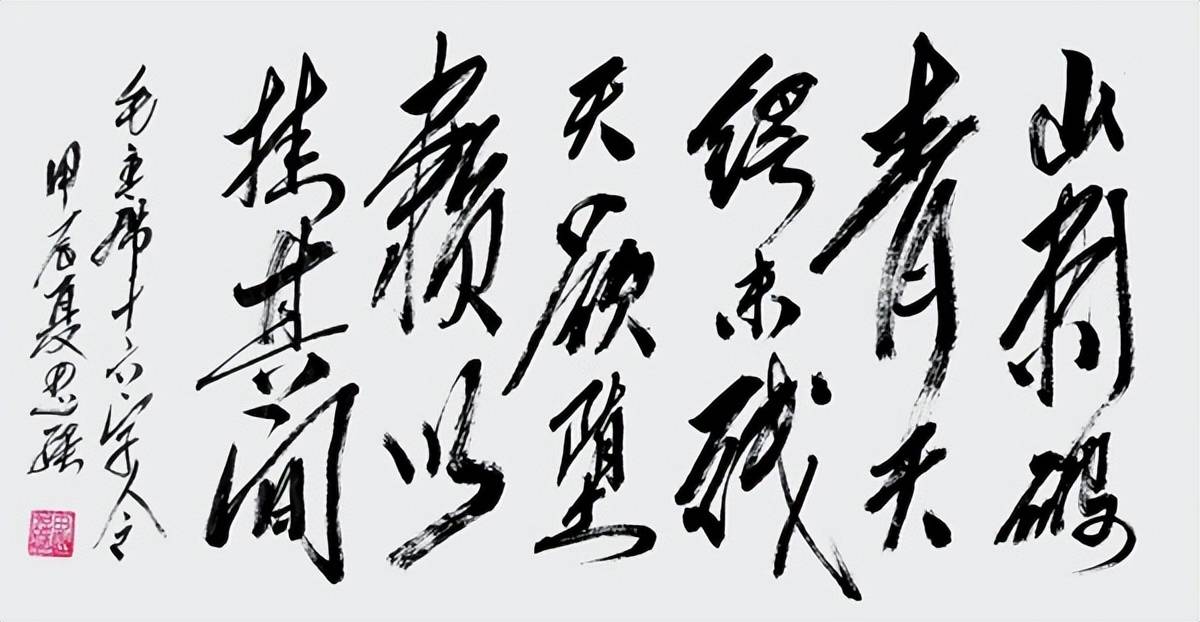 山刺破
青天
锷未残
天欲堕
赖以
拄其间
毛主席十六字令之
甲辰夏思